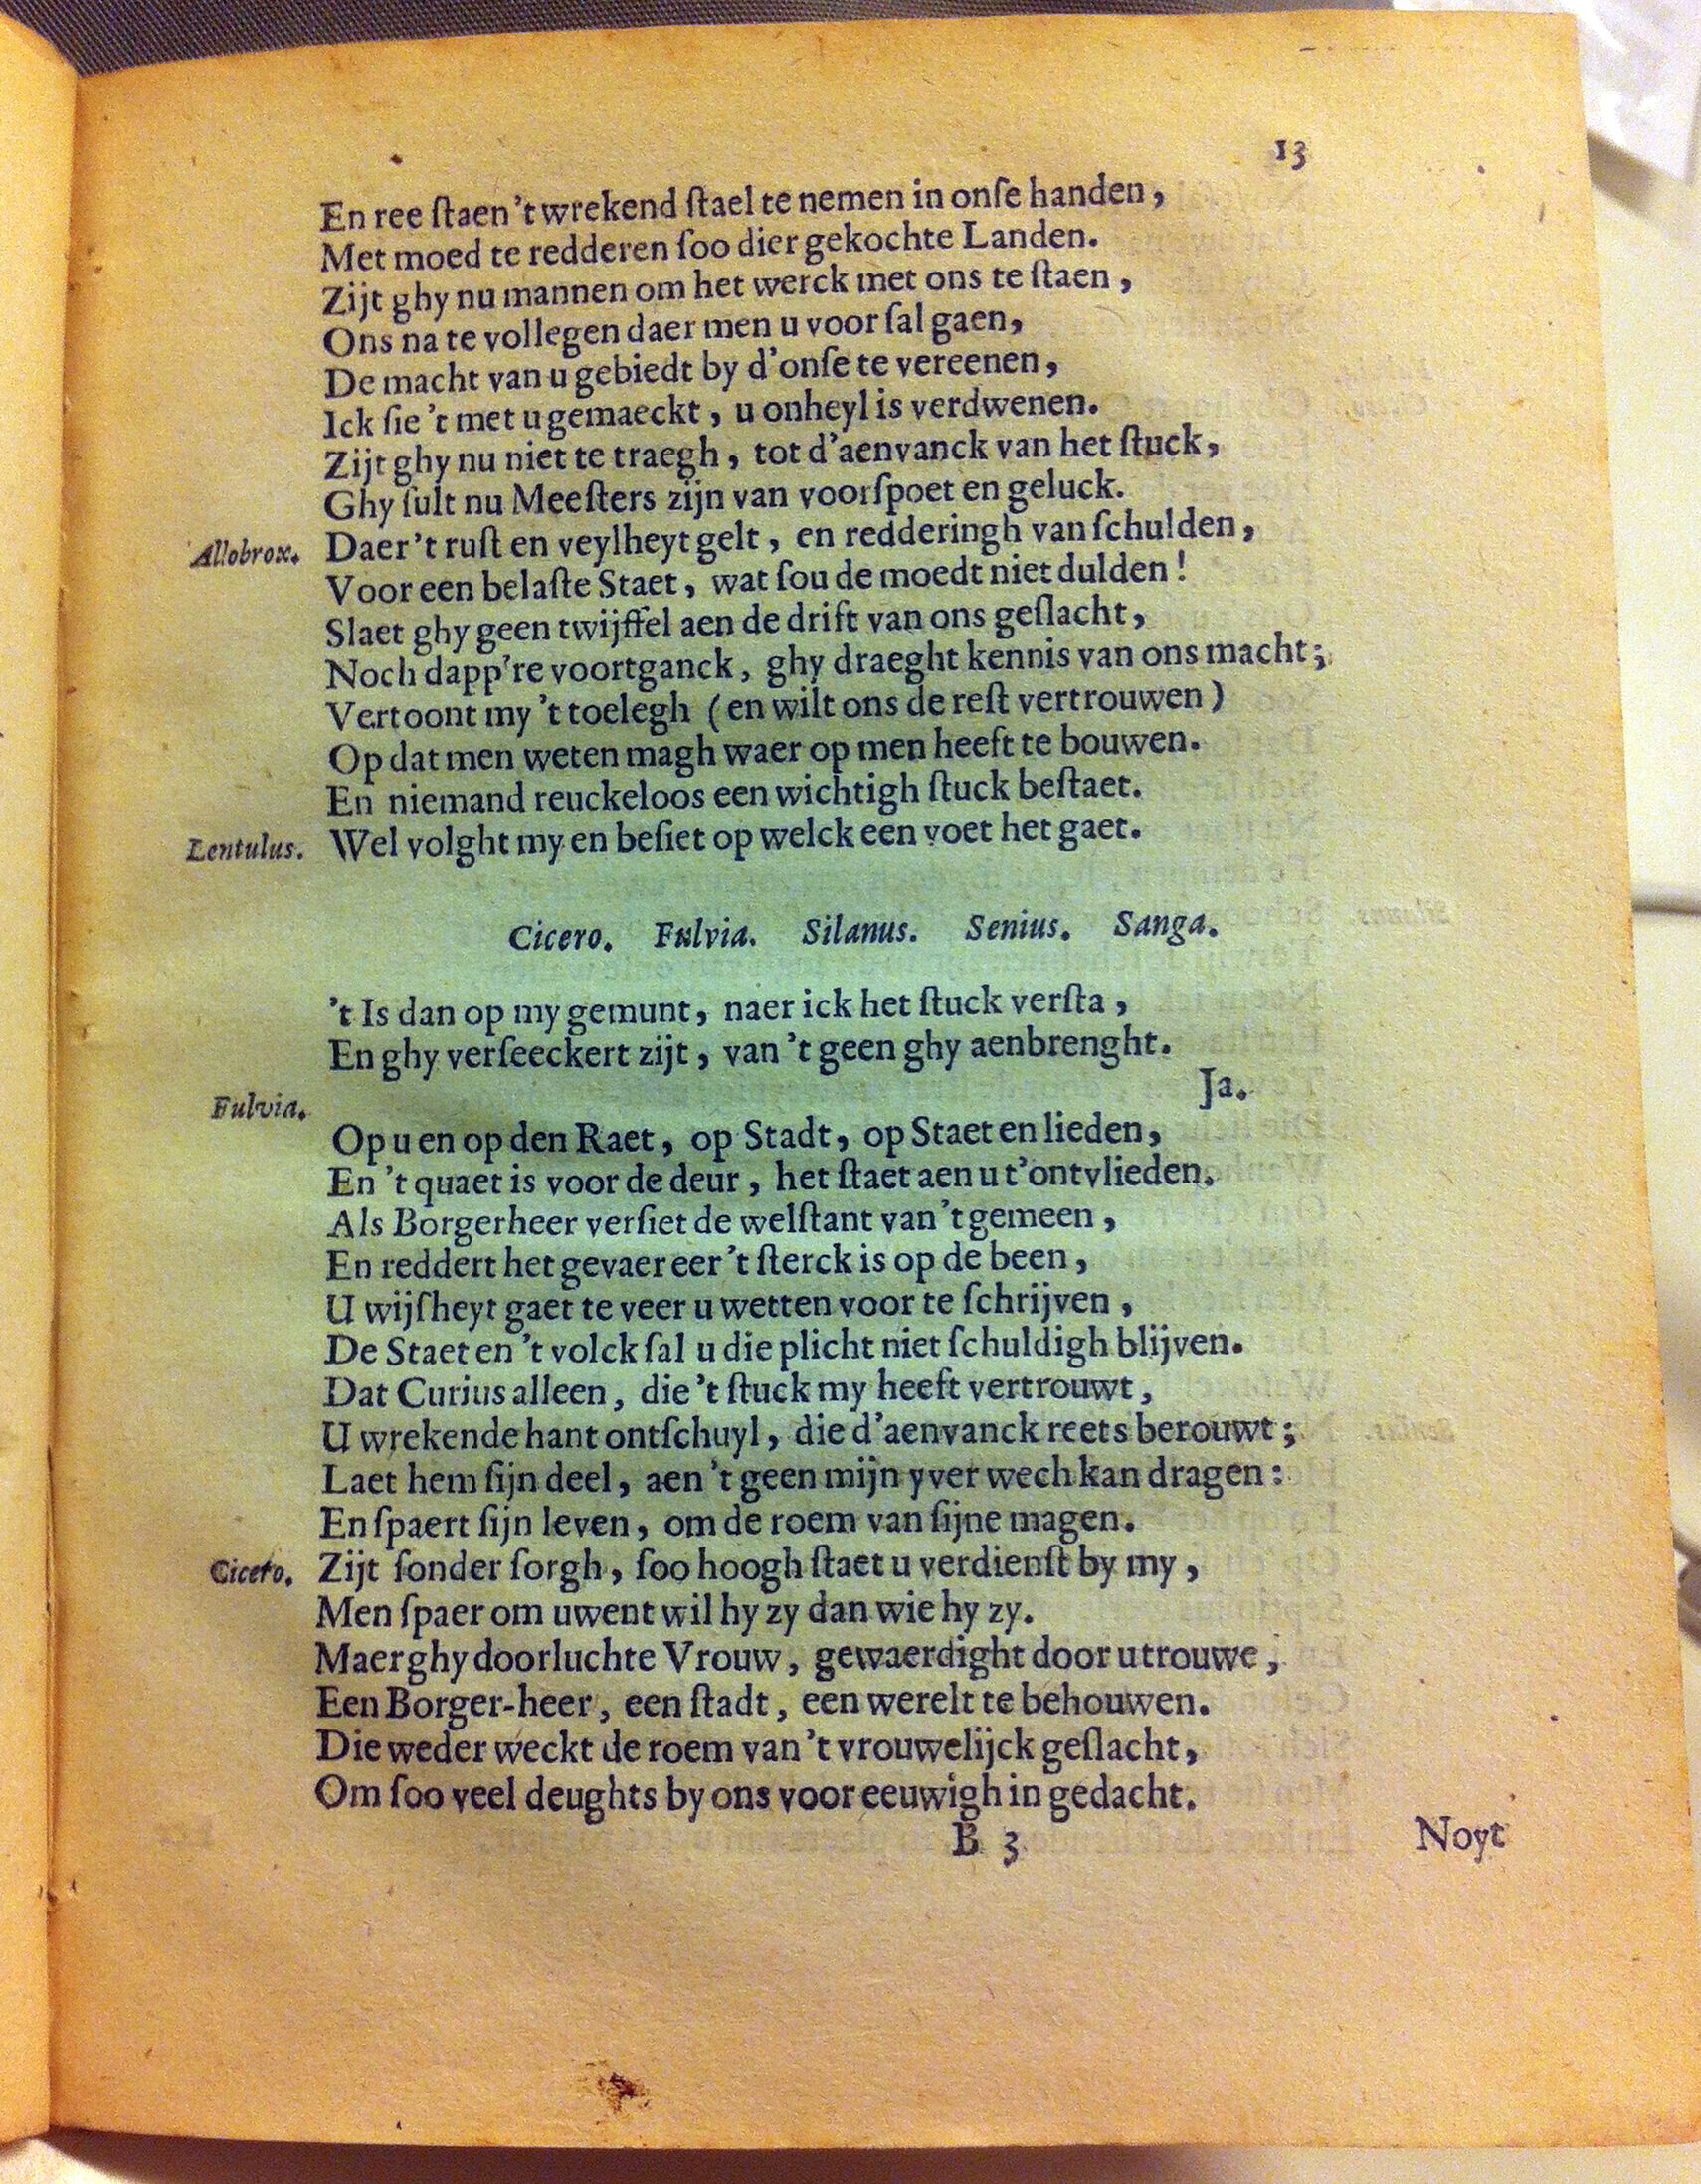 13
En ree ſtaen 't wrekend ſtael te nemen in onſe handen,
Met moed te redderen ſoo dier gekochte Landen.
Zijt ghy nu mannen om het werck met ons te ſtaen,
Ons na te vollegen daer men u voor ſal gaen,
De macht van u gebiedt by d'onſe te vereenen,
Ick ſie 't met u gemaeckt, u onheyl is verdwenen.
Zijt ghy nu niet te traegh, tot d'aenvanck van het ſtuck,
Ghy ſult nu Meeſters zijn van voorſpoet en geluck.
Allobrox. Daer 't ruſt en veylheyt gelt, en redderingh van ſchulden,
Voor een belaſte Staet, wat ſou de moedt niet dulden!
Slaet ghy geen twijffel aen de drift van ons geſlacht,
Noch dapp're voortganck, ghy draeght kennis van ons macht;
Vertoont my 't toelegh (en wilt ons de reſt vertrouwen)
Op dat men weten magh waer op men heeft te bouwen.
En niemand reuckeloos een wichtigh ſtuck beſtaet.
Lentulus. Wel volght my en beſiet op welck een voet het gaet.
Cicero. Fulvia. Silanus. Senius. Sanga.
't Is dan op my gemunt, naer ick het ſtuck verſta,
En ghy verſeeckert zijt, van 't geen ghy aenbrenght.
Ja.
Fulvia.
Op u en op den Raet, op Stadt, op Staet en lieden,
En 't quaet is voor de deur, het ſtaet aen u t'ontvlieden.
Als Borgerheer verſiet de welſtant van 't gemeen,
En reddert het gevaer eer 't ſterck is op de been,
U wijſheyt gaet te veer u wetten voor te ſchrijven,
De Staet en 't volck ſal u die plicht niet ſchuldigh blijven.
Dat Curius alleen, die 't ſtuck my heeft vertrouwt,
U wrekende hant ontſchuyl, die d'aenvanck reets berouwt;
Laet hem ſijn deel, aen 't geen mijn yver wech kan dragen:
En ſpaert ſijn leven, om de roem van ſijne magen.
Cicero. Zijt ſonder ſorgh, ſoo hoogh ſtaet u verdienſt by my,
Men ſpaer om uwent wil hy zy dan wie hy zy.
Maer ghy doorluchte Vrouw, gewaerdight door u trouwe,
Een Borger-heer, een ſtadt, een werelt te behouwen.
Die weder weckt de roem van 't vrouwelijck geſlacht,
Om ſoo veel deughts by ons voor eeuwigh in gedacht.
B 3 Noyt